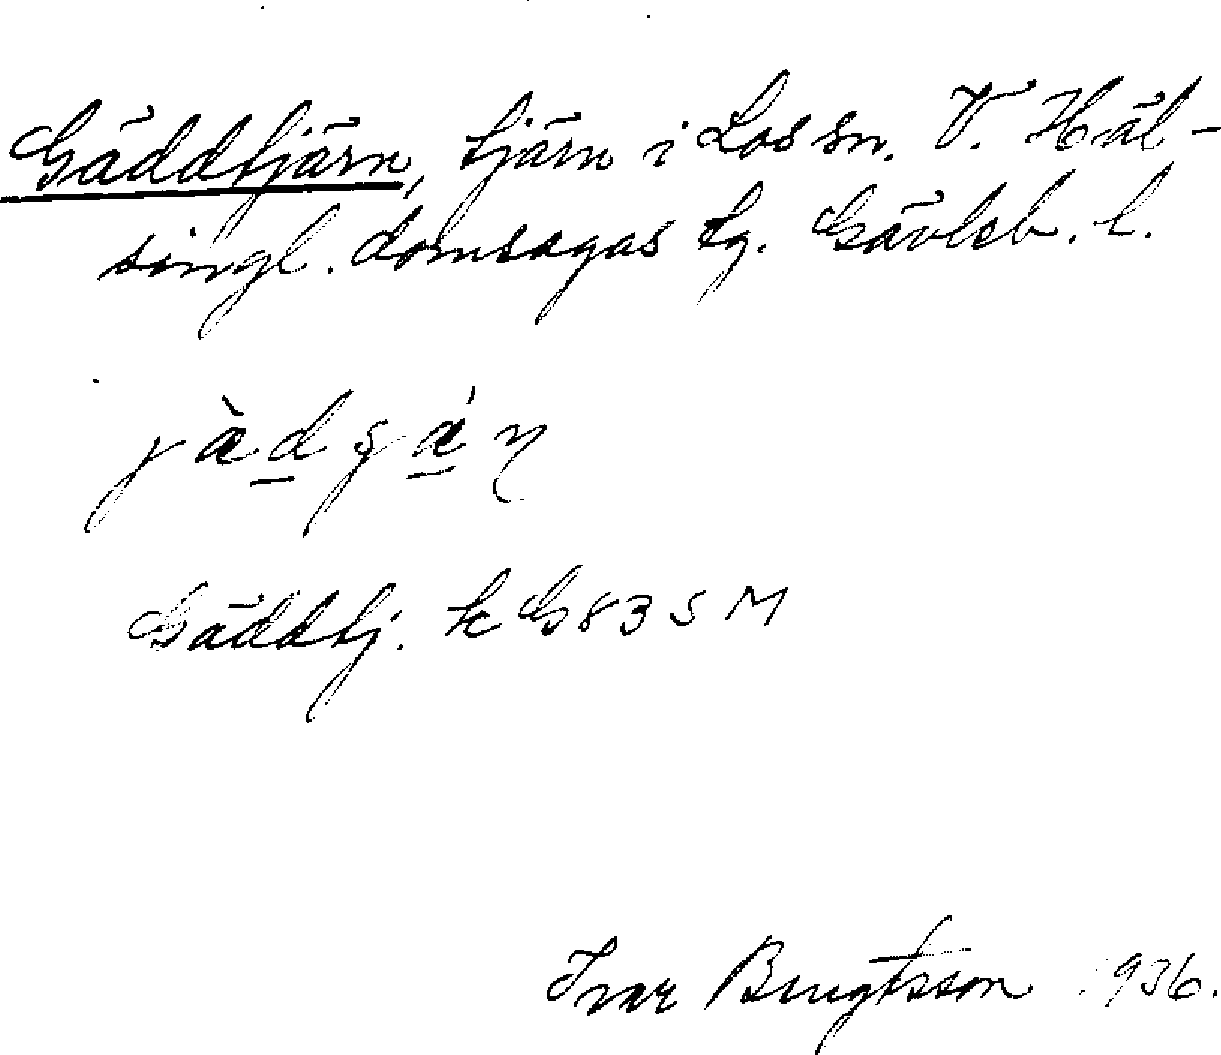 Gäddtjärn, tjärn i Los sn. V. Häl-
singl. domsagas tg. Gävleb. l.
Gäddtj. k G 83 S M
Ivar Bengtsson 1936.